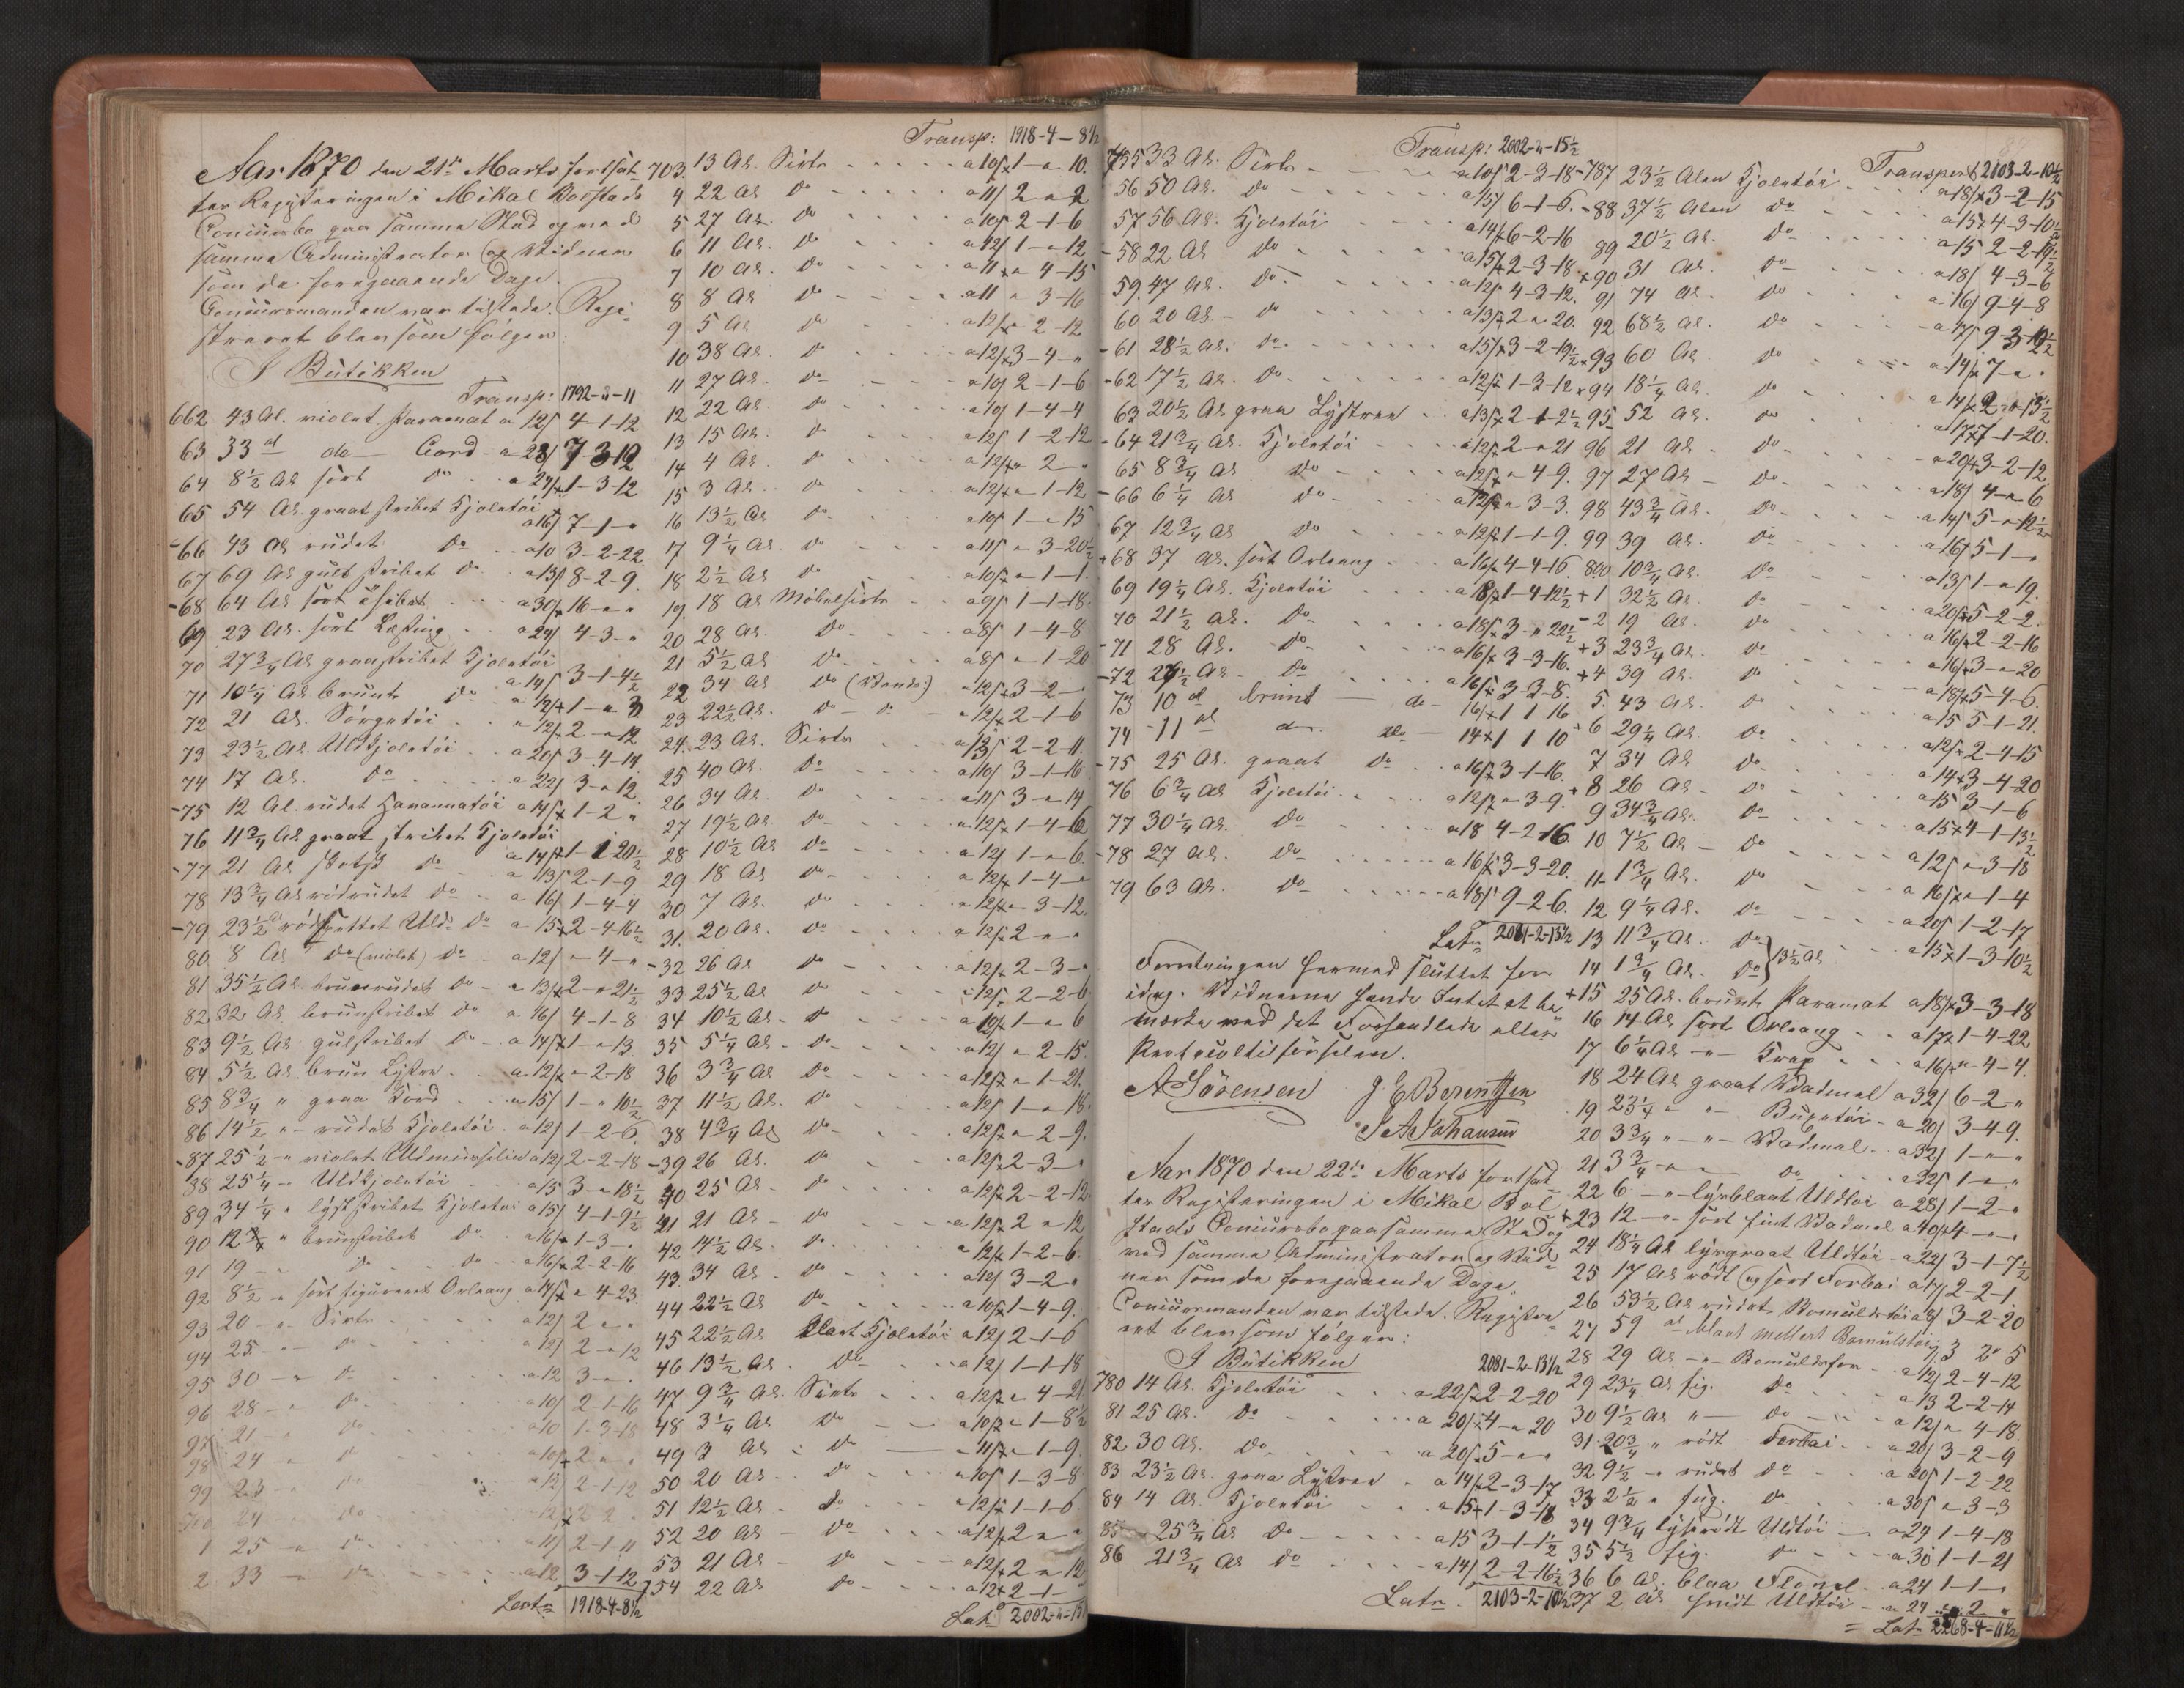 Aar 1870 den 21de Marts fortsat-
tes Registeringen i Mikal Bolstads
Concursbo paa samme Sted og med
samme Administrator og Vidner
som de foregaaende Dage.
Concursmanden var tilstede. Regi-
streret blev som følger:
I Butikken
Transp: 1792-"-11
662 43 Al. violet Paramat a 12/ 4-1-12
63 33 al do Cord a 28/ 7-3-12
64 8½ Al sort do a 24/ 1-3-12
65 54 Al. graat stribet Kjoletöi
a 16/ 7-1-"
66 43 Al rudet do a 10 3-2-22
67 69 Al gult stribet do a 13/ 8-2-9
68 64 Al sort a 30/ 16-"-"
69 23 Al. sort Lasting a 24/ 4-3-"
70 27¾ Al graastribet Kjoletöi
a 14/ 3-1-4½
71 10¼ Al brunt do a 12/ 1-"-3
72 21 Al. Sörgetöi a 12/ 2-"-12
73 23½ Al. Uldkjoletöi a 20/ 3-4-14
74 17 Al. do a 22/ 3-"-12
75 12 Al. rudet a 14/ 1-2-"
76 11¾ Al graat stribet Kjoletöi
a 14/ 1-1-20½
77 21 Al skotsk do a 13/ 2-1-9
78 13¾ Al rödrudet do a 16/ 1-4-4
79 23½ rödspettet Uld do a 15 2-4-16½
80 8 Al do (violet) do a 12/ "-4-"
81 35½ Al brunrudet do a 13/ 2-"-21½
82 32 Al brunstribet do a 16/ 4-1-8
83 9½ Al gulstribet do a 14/ 1-"-13
84 5½ Al. brun Lystre a 12/ "-2-18
85 8¾ " graa Cord a 15/ 1-"-10½
86 14½ " rudet Kjoletöi a 12/ 1-2-6
87 25½ " violet Uldmuselin a 12/ 2-2-18
88 25¼ " Uldkjoletöi a 15 3-"-18½
89 34¼ " lyst stribet Kjoletöi a 15/ 4-1-9½
90 12¾ " brunstribet do a 16/ 1-3-"
91 19 " do do a 16/ 2-2-16
92 8½ " sort figureret Orleang a 14/ "-4-23
93 20 " Sirts a 12/ 2-"-"
94 25 " do a 12/ 2-"-12
95 30 " do a 12 3-"-"
96 28 " do a 10/ 2-1-16
97 21 " do a 10 1-3-18
98 24 " do a 10/ 2-"-"
99 23 " do a 12/ 2-1-12
700 24 " do a 12 2-2-"
1 25 " do a 11/ 2-1-11
2 33 " do a 12 3-1-12
Latr 1918-4-8½
Transp: 1918-4-8½
703 13 Al. Sirts a 10/ 1-"-10
4 22 Al do a 11/ 2-"-2
5 27 Al. do a 10/ 2-1-6
6 11 Al. do a 12/ 1-"-12
7 10 Al. do a 11 "-4-15
8 8 Al do a 11 "-3-16
9 5 Al do a 12/ "-2-12
10 38 Al. do a 12/ 3-4-"
11 27 Al. do a 10/ 2-1-6
12 22 Al. do a 10/ 1-4-4
13 15 Al. do a 12/ 1-2-12
14 4 Al. do a 12/ "-2-"
15 3 Al. do a 12/ "-1-12
16 13½ Al do a 10/ 1-"-15
17 9¼ Al. do a 11/ "-3-20½
18 2½ Al do a 10/ "-1-1
19 18 Al Möbelsirts a 9/ 1-1-18
20 28 Al. do a 8/ 1-4-8
21 5½ Al do a 8/ "-1-20
22 34 Al do a 12/ 3-2-"
23 22½ Al. do do a 12/ 2-1-6
24 23 Al. Sirts a 13/ 2-2-11
25 40 Al. do a 10/ 3-1-16
26 34 Al. do a 11/ 3-"-14
27 19½ Al. do a 12/ 1-4-6
28 10½ Al do a 12/ 1-"-6
29 18 Al do a 12/ 1-4-"
30 7 Al. do a 12/ "-3-12
31 20 Al. do a 12/ 2-"-"
32 26 Al do a 12/ 2-3-"
33 25½ Al do a 12/ 2-2-6
34 10½ Al do a 10/ 1-"-6
35 5¼ Al do a 12/ "-2-15
36 3¾ Al do a 12/ "-1-21
37 11½ Al. do a 12/ 1-"-18
38 4¾ Al do a 12/ "-2-9
39 26 Al. do a 12/ 2-3-"
40 25 Al. do a 12/ 2-2-12
41 21 Al do a 12/ 2-"-12
42 14½ Al. do a 12/ 1-2-6
43 34 Al do a 12/ 3-2-"
44 22½ Al do a 10/ 1-4-9
45 22½ Al blaat Kjoletöi a 12/ 2-1-6
46 13½ Al. do a 12/ 1-1-18
47 9¾ Al. Sirts a 12/ "-4-21
48 3¼ Al do a 10/ "-1-8½
49 3 Al do a 11/ "-1-9
50 20 Al. do a 10/ 1-3-8
51 12½ Al do a 12/ 1-1-6
52 20 Al do a 12/ 2-"-"
53 21 Al do a 12/ 2-"-12
754 22 Al do a 12 2-1-"
Lat 2002-"-15½
Transp: 2002-"-15½
755 33 Al. Sirts a 10/ 2-3-18
56 50 Al. do a 15/ 6-1-6
57 56 Al. Kjoletöi a 14/ 6-2-16
58 22 Al do a 15/ 2-3-18
59 47 Al. do a 12/ 4-3-12
60 20 Al do a 13/ 2-"-20
61 28½ Al. do a 15/ 3-2-19½
62 17½ Al. do a 12/ 1-3-12
63 20½ Al graa Lystre a 13/ 2-1-2½
64 21¾ Al. Kjoletöi a 12/ 2-"-21
65 8¾ Al do a 12/ "-4-9
66 6¼ Al do a 12/ "-3-3
67 12¾ Al do a 12/ 1-1-9
68 37 Al. sort Orleang a 16/ 4-4-16
69 19¼ Al. Kjoletöi a 1-4-12½
70 21½ Al. do a 18/ 3-"-22½
71 28 Al. do a 16/ 3-3-16
72 27½ Al. do a 16/ 3-3-8
73 10 al brunt do 16/ 1 1 16
74 11 al do do 14 1 1 10
75 25 Al. graat do a 16/ 3-1-16
76 6¾ Al Kjoletöi a 12/ "-3-9
77 30¼ Al. do a 18 4-2-16
78 27 Al. do a 16/ 3-3-20
79 63 Al. do a 18/ 9-2-6
Latr 2081-2-13½
Forretningen hermed sluttet for
idag. Vidnerne havde Intet at be
mærke ved det Forhandlede eller
Protocoltilförselen.
A Sörensen J. E Berentsen
J A Johansen
Aar 1870 den 22de Marts fortsat
tes Registeringen i Mikal Bol
stads Concursbo paa samme Sted og
med samme Administrator og Vid-
ner som de foregaaende Dage.
Concursmanden var tilstede. Registre
ret blev som følger:
I Butikken 2081-2-13½
780 14 Al. Kjoletöi a 22/ 2-2-20
81 25 Al. do a 20/ 4-"-20
82 30 Al. do a 20/ 5-"-"
83 23½ Al. graa Lystre a 14/ 2-3-17
84 14 Al. Kjoletöi a 15 1-3-18
85 25¾ Al do a 15 3-1-1½
86 21¾ Al do a 14/ 2-2-16½
Latr. 2103-2-10½
Transport 2103-2-10½
787 23½ Alen Kjoletöi a 18/ 3-2-15
88 37½ Alen do a 15 4-3-10½
89 20½ Al. do a 15 2-2-19½
90 31 Al. do a 18/ 4-3-6
91 74 Al. do a 16/ 9-4-8
92 68½ Al. do a 17/ 9-3-12½
93 60 Al do a 14/ 7-"-"
94 18¼ Al. do a 14/ 2-"-15½
95 52 Al. do a 17 7-1-20
96 21 Al do a 20 3-2-12
97 27 Al do a 18/ 4-"-6
98 43¾ Al. do a 14/ 5-"-12½
99 39 Al. do a 16 5-1-"
800 10¾ Al. do a 13/ 1-"-19
1 32½ Al do a 20/ 5-2-2
2 19 Al. do a 16/ 2-2-16
3 23¾ Al. do a 16/ 3-"-20
4 39 Al. do a 18/ 5-4-6
5 43 Al. do a 15 5-1-21
6 29¼ Al. do a 12/ 2-4-15
7 34 Al do a 14 3-4-20
8 26 Al do a 15 3-1-6
9 34¾ Al. do a 15 4-1-13½
10 7½ Al do a 12/ "-3-18
11 1¾ Al. do a 16/ "-1-4
12 9¼ Al. do a 20/ 1-2-17
13 11¾ Al. do
14 1¾ Al. do } 13½ Al a 15 1-3-10½
15 25 Al. brunt Paramat a 18/ 3-3-18
16 14 Al sort Orleang a 17 1-4-22
17 6¼ Al " Trap a 16/ "-4-4
18 24 Al graat Vadmel a 32/ 6-2-"
19 23¼ " " Buxetöi a 20/ 3-4-9
20 3¾ " " Vadmel a 32/ 1-"-"
21 3¾ " do a 32/ 1-"-"
22 6 " lyseblaat Uldtöi a 28/ 1-2-"
23 12 " sort fint Vadmel a 40/ 4-"-"
24 18¼ Al lysegraat Uldtöi a 22/ 3-1-7½
25 17 Al rödt og sort Forbai a 17/ 2-2-1
26 53½ Al rudet Bomuldstöi a 8/ 3-2-20
27 59 al blaat mellert Bomulstöi 7/ 3 2 5
28 29 Al " Bomuldsfor a 12/ 2-4-12
29 23¼ Al fig. do a 13 2-2-14
30 9½ Al " do a 12/ "-4-18
31 20¾ " rödt Forbai a 20/ 3-2-9
32 9½ " rudet do a 20/ 1-2-22
33 2½ " fig. do a 30/ "-3-3
34 9¾ lyserödt Uldtöi a 24 1-4-18
35 5½ fig. do a 30 1-1-21
36 6 Al. blaa Flonel a 24 1-1-"
37 2 Al hvidt Uldtöi a 24 "-2-"
Lat 2268-4-11½